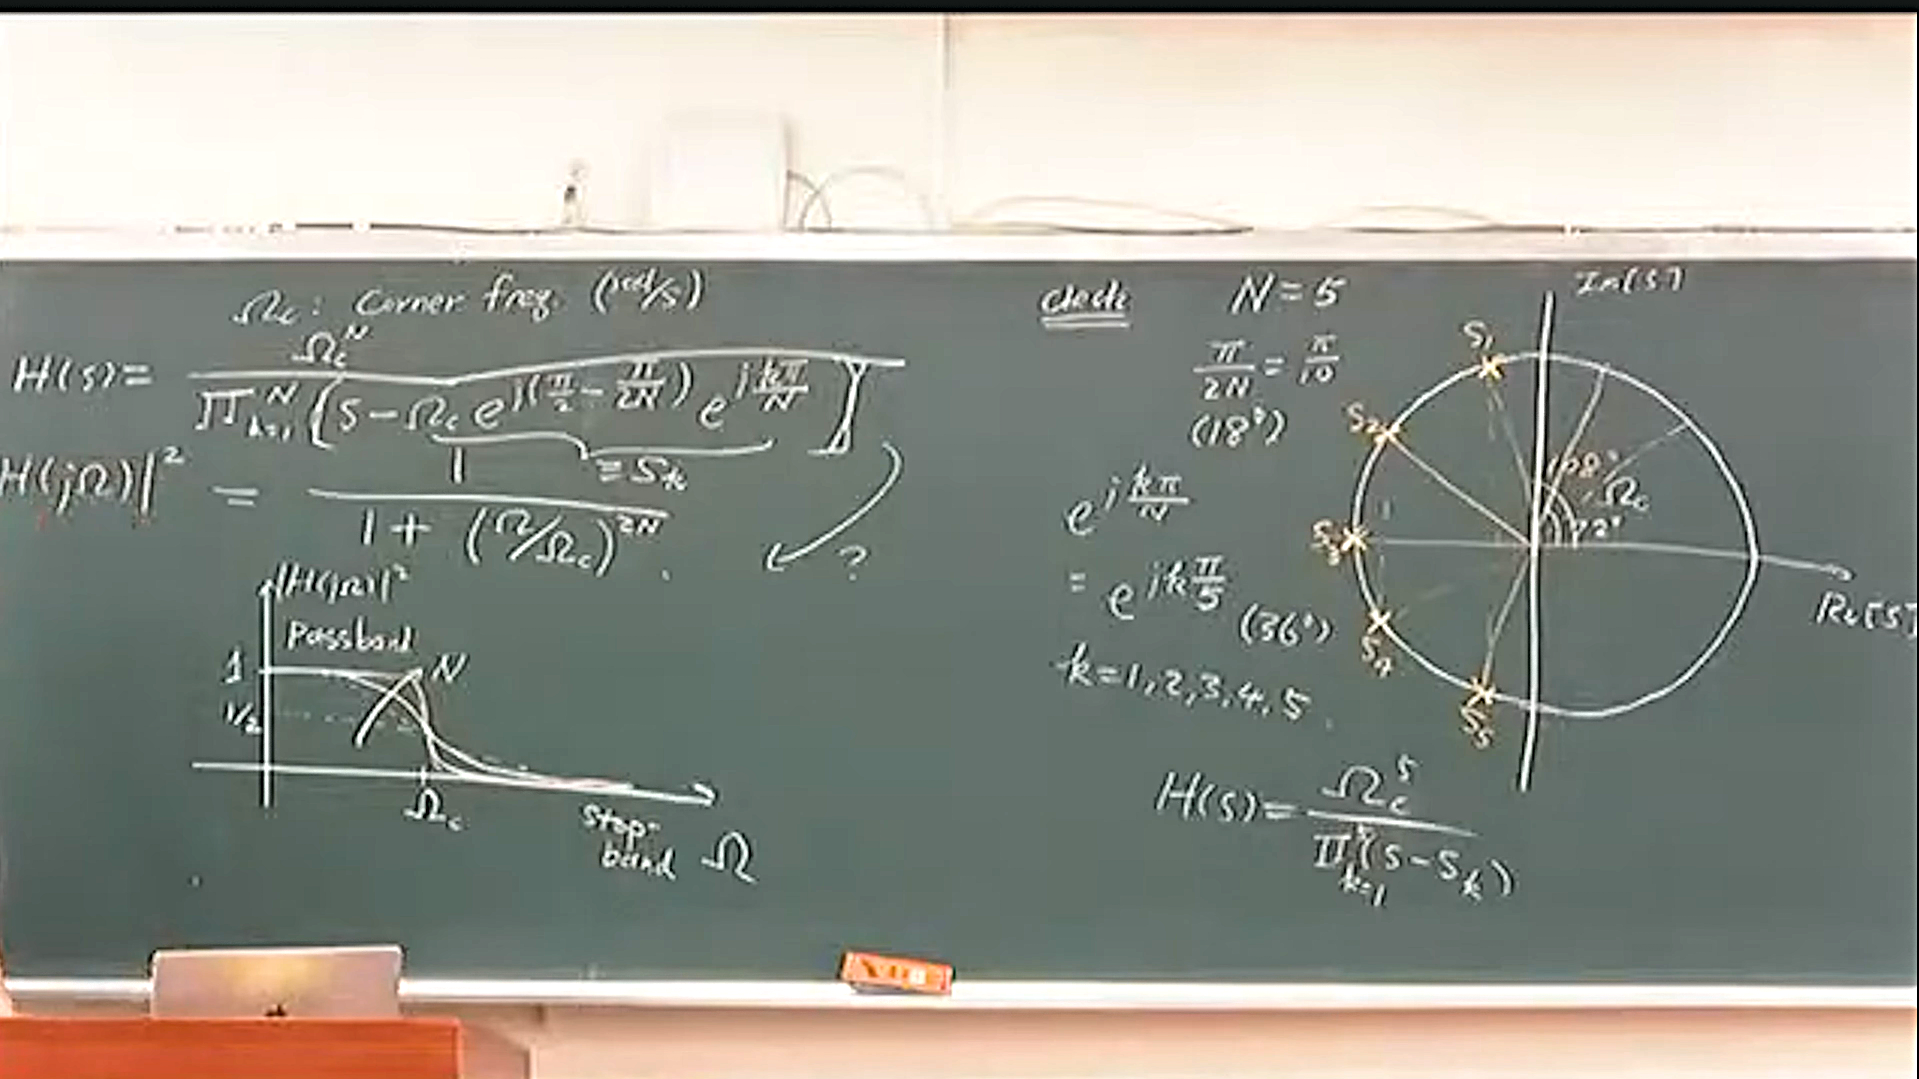 Ωc : Corner freq. (rad/s)
H(s) = Ωc^N / Π_{k=1}^N [s - Ωc e^{j(π/2 - π/2N)} e^{j kπ/N}]
≡ Sk
H(jΩ)|² = 1 / (1 + (Ω/Ωc)^{2N}) .
?
|H(jΩ)|²
Passband
1
N
1/2
Ωc
Stop-
band
Ω
check
N = 5
π/2N = π/10
(18°)
e^{j kπ/N}
= e^{jk π/5} (36°)
k = 1, 2, 3, 4, 5 .
Im[s]
S1
S2
S3
S4
S5
108°
Ωc
72°
Re[s]
H(s) = Ωc^5 / Π_{k=1} (s - Sk)